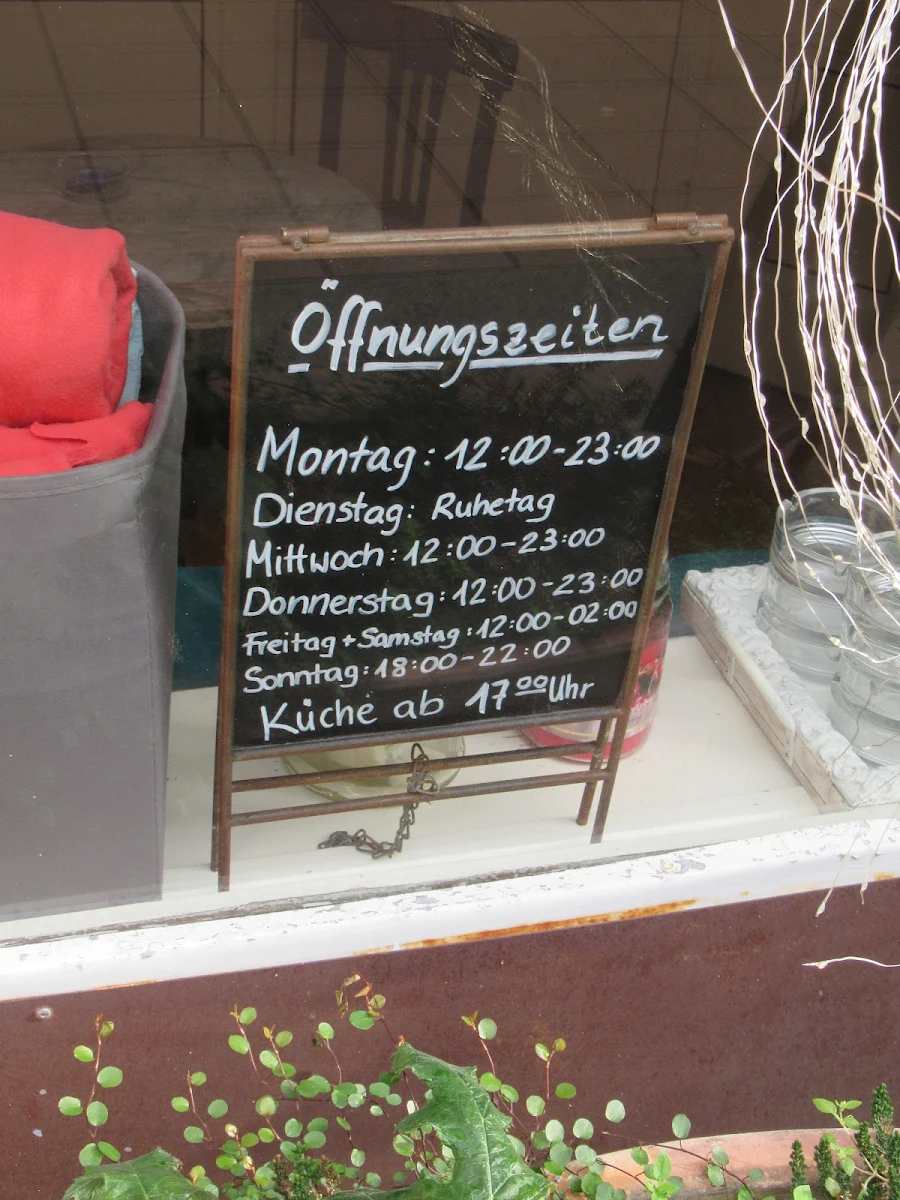 Öffnungszeiten
Montag: 12:00-23:00
Dienstag: Ruhetag
Mittwoch: 12:00-23:00
Donnerstag: 12:00-23:00
Freitag + Samstag: 12:00-02:00
Sonntag: 18:00-22:00
Küche ab 17⁰⁰ Uhr